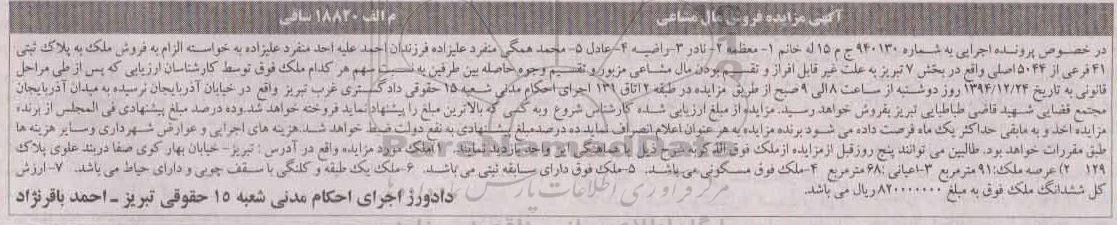 آگهی مزایده فروش مال مشاعی م الف ۱۸۸۲۰ ساقی
در خصوص پرونده اجرایی به شماره ۹۴۰۱۳۰ ج م ۱۵ له خانم ۱- معظمه ۲- نادر ۳-راضیه ۴-عادل ۵- محمد همگی منفرد علیزاده فرزندان احمد علیه احد منفرد علیزاده به خواسته الزام به فروش ملک به پلاک ثبتی
۴۱ فرعی از ۵۰۴۴ اصلی واقع در بخش ۷ تبریز به علت غیر قابل افراز و تقسیم بودن مال مشاعی مزبور و تقسیم وجوه حاصله بین طرفین به نسبت سهم هر کدام ملک فوق توسط کارشناسان ارزیابی که پس از طی مراحل
قانونی به تاریخ ۱۳۹۴/۱۲/۲۴ روز دوشنبه از ساعت ۸ الی ۹ صبح از طریق مزایده در طبقه ۲ اتاق ۱۳۹ اجرای احکام مدنی شعبه ۱۵ حقوقی دادگستری غرب تبریز واقع در خیابان آذربایجان نرسیده به میدان آذربایجان
مجتمع قضایی شهید قاضی طباطبایی تبریز بفروش خواهد رسید. مزایده از مبلغ ارزیابی شده کارشناس شروع و به کسی که بالاترین مبلغ را پیشنهاد نماید فروخته خواهد شد.وده درصد مبلغ پیشنهادی فی المجلس از برنده
مزایده اخذ و به مابقی حداکثر یک ماه فرصت داده می شود برنده مزایده به هر عنوان اعلام انصراف نماید ده درصد مبلغ پیشنهادی به نفع دولت ضبط خواهد شد.هزینه های اجرایی و عوارض شهرداری وسایر هزینه ها
طبق مقررات خواهد بود. طالبین می توانند پنج روز قبل از مزایده از ملک فوق الذکر به شرح ذیل با هماهنگی این واحد بازدید نمایند. ۱) ملک مورد مزایده واقع در آدرس : تبریز- خیابان بهار کوی صفا دربند علوی پلاک
۱۲۹ ۲) عرصه ملک:۹۱ مترمربع ۳-اعیانی :۶۸ مترمربع ۴-ملک فوق مسکونی می باشد. ۵-ملک فوق دارای سابقه ثبتی می باشد. ۶-ملک یک طبقه و کلنگی با سقف چوبی و دارای حیاط می باشد. ۷-ارزش
کل ششدانگ ملک فوق به مبلغ ۸۲۰۰۰۰۰۰۰ ریال می باشد.
دادورز اجرای احکام مدنی شعبه ۱۵ حقوقی تبریز ـ احمد باقرنژاد